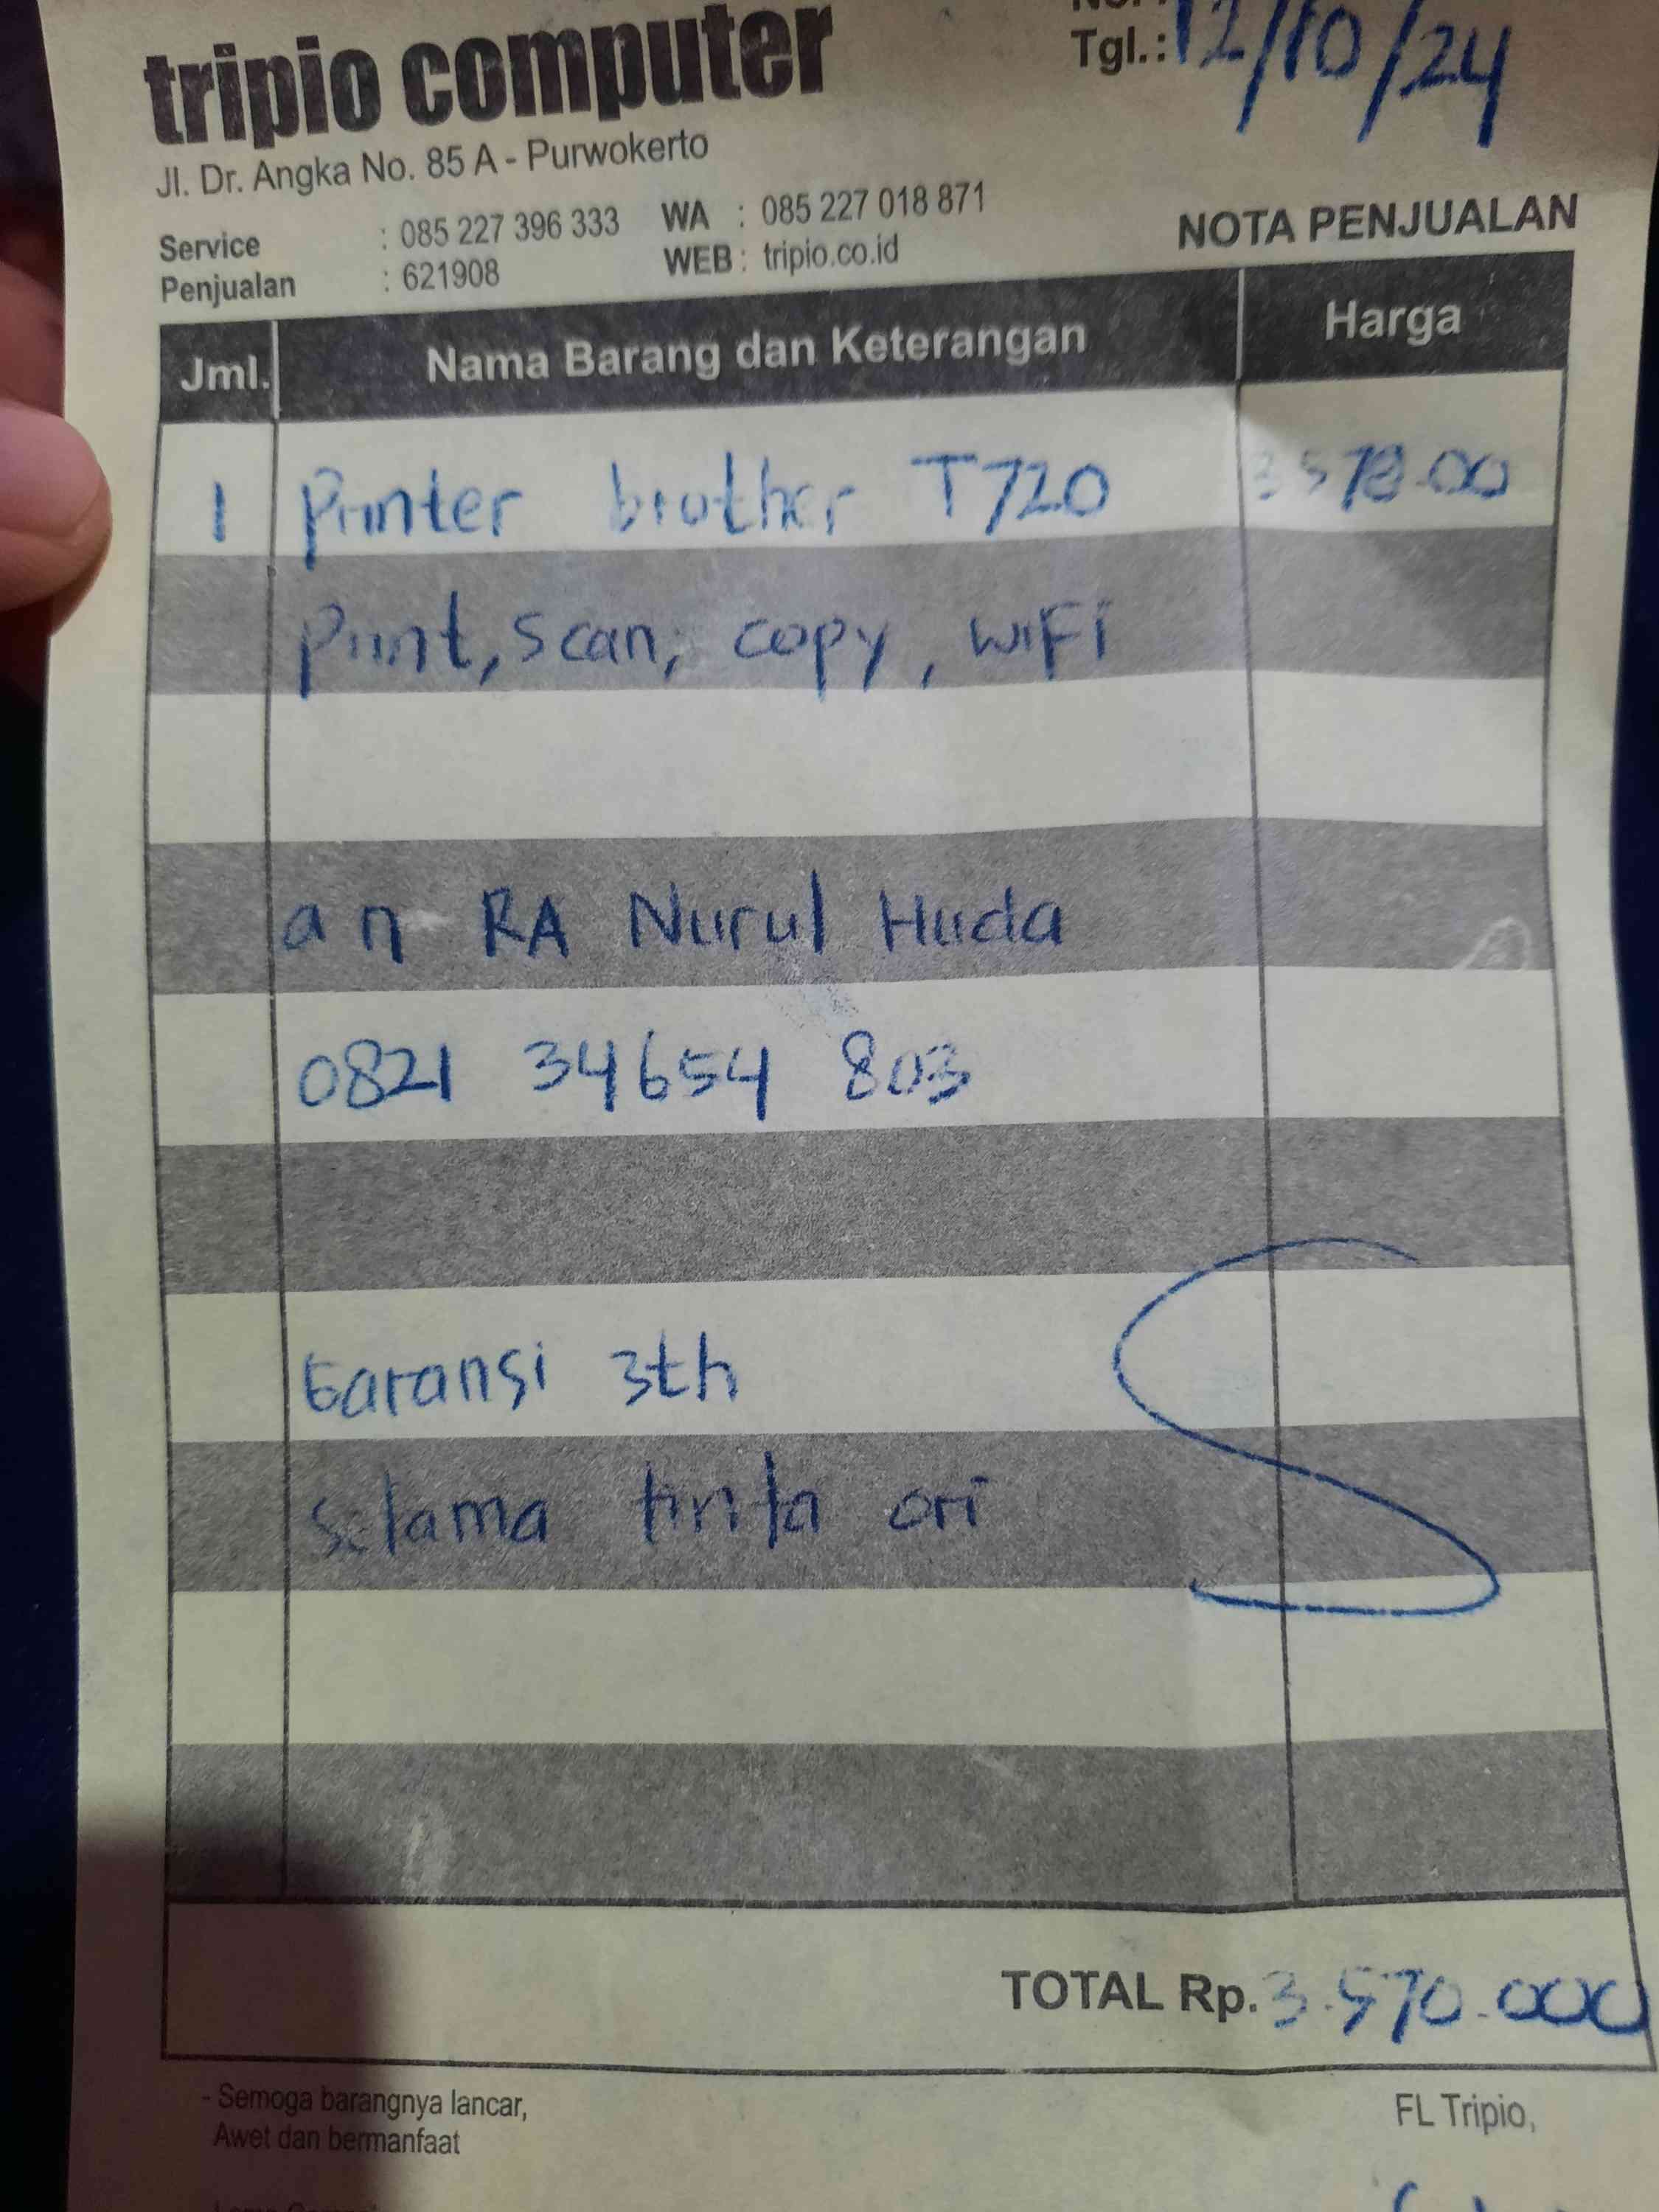 tripio computer
Tgl.: 12/10/24
Jl. Dr. Angka No. 85 A - Purwokerto
Service : 085 227 396 333 WA : 085 227 018 871
Penjualan : 621908 WEB : tripio.co.id
NOTA PENJUALAN
Jml. Nama Barang dan Keterangan Harga
1 Printer brother T720
Print, scan, copy, wiFi
an RA Nurul Huda
0821 34654 803
Garansi 3th
selama tinta ori
TOTAL Rp. 3.570.000
- Semoga barangnya lancar,
Awet dan bermanfaat
FL Tripio,